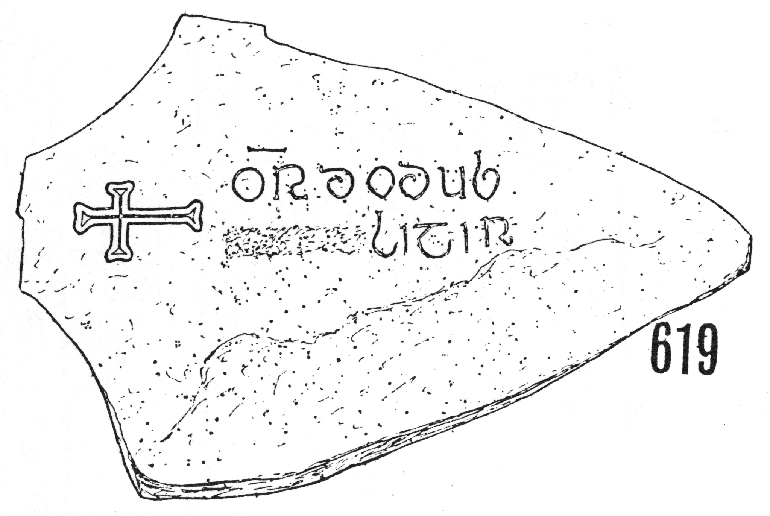 OR̄ do dub
litir
619